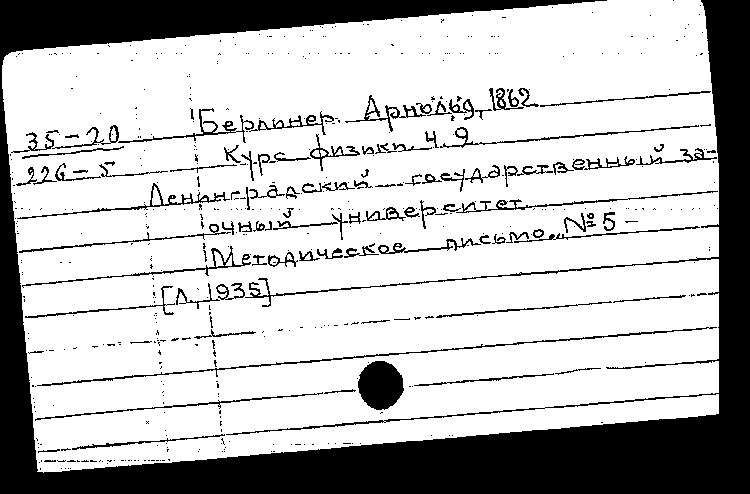 35-20
226-5
Берлинер. Арнольд, 1862
Курс физики. Ч. 9
Ленинградский государственный за-
очный университет
Методическое письмо... № 5 -
[Л., 1935]